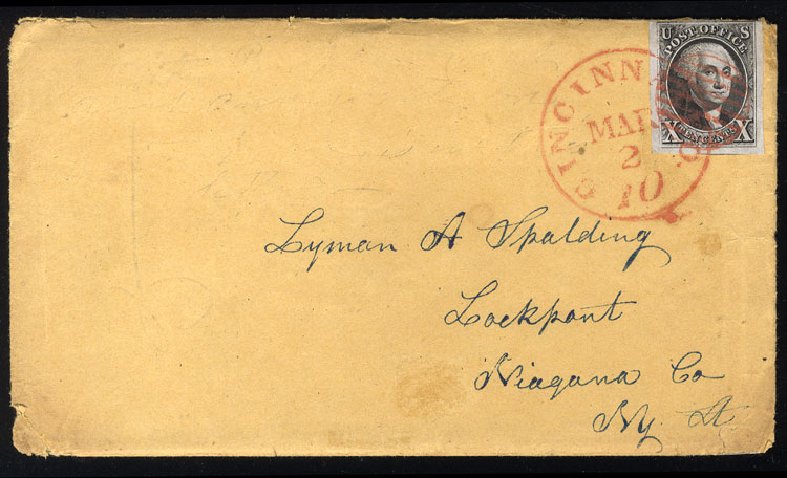 U S
POST OFFICE
X TEN CENTS X
CINCINNA O.
MAR
2
10
Lyman A Spalding
Lockport
Niagara Co
Ny. St